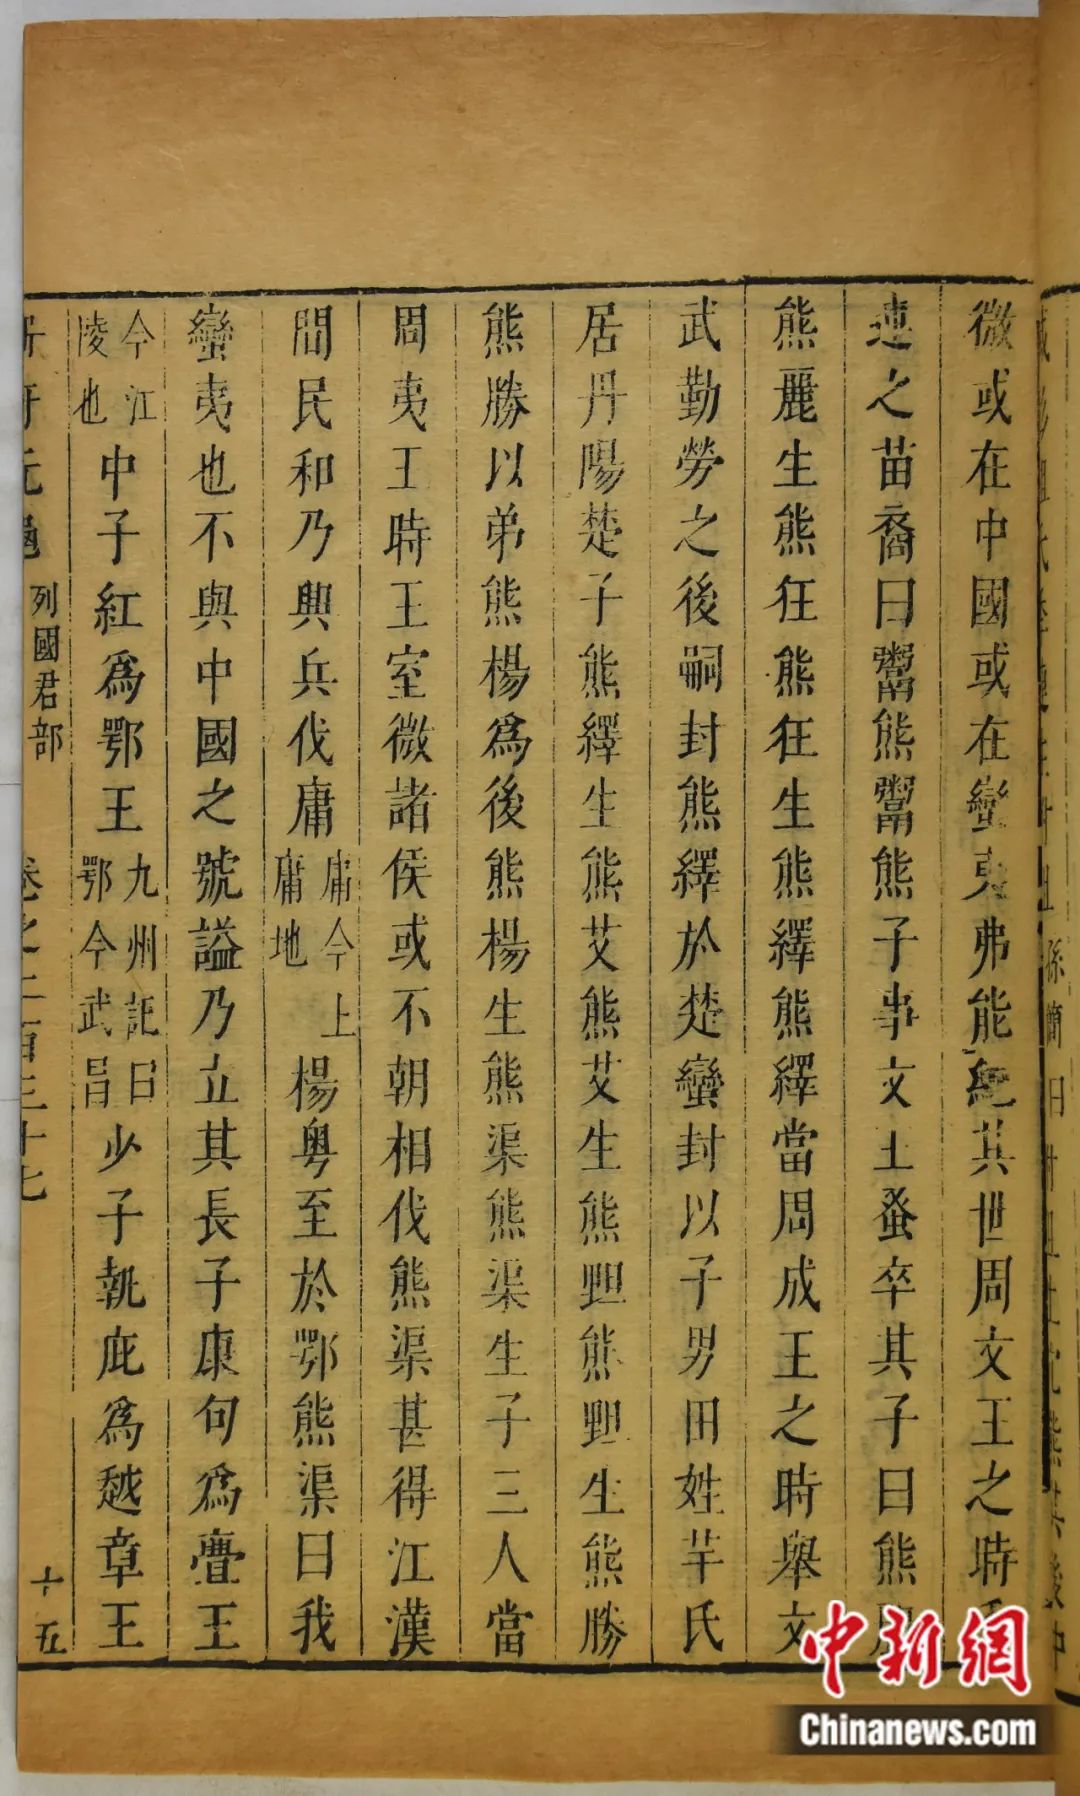 微或在中國或在蠻夷弗能紀其世周文王之時
連之苗裔曰鬻熊鬻熊子事文王蚤卒其子曰熊
熊麗生熊狂熊狂生熊繹熊繹當周成王之時舉文
武勤勞之後嗣封熊繹於楚蠻封以子男田姓芊氏
居丹陽楚子熊繹生熊艾熊艾生熊䵣熊䵣生熊勝
熊勝以弟熊楊爲後熊楊生熊渠熊渠生子三人當
周夷王時王室微諸侯或不朝相伐熊渠甚得江漢
間民和乃興兵伐庸庸今上庸地楊粤至於鄂熊渠曰我
蠻夷也不與中國之號謚乃立其長子康句爲亶王
今江陵也中子紅爲鄂王九州記曰鄂今武昌少子執疵爲越章王
列國君部
十五
中新網
Chinanews.com